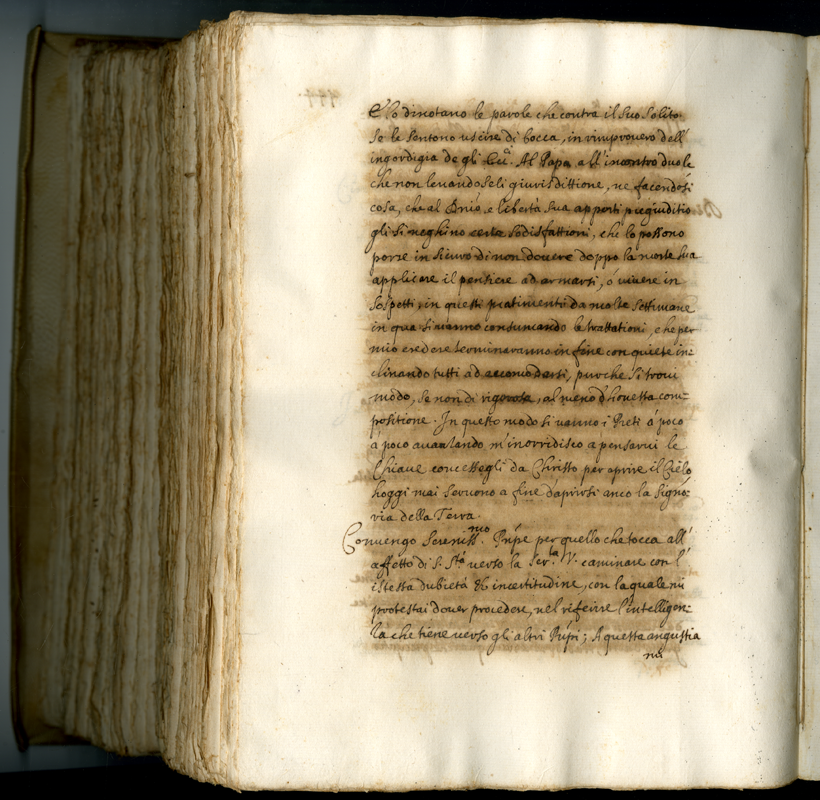 E lo dinotano le parole che contra il suo solito
se le sentono uscire di bocca, in rimprovero dell'
ingordigia de gli Ecc.i Al Papa all'incontro duole
che non levandoseli giurisdittione, ne facendosi
cosa, che al Dnio, e libertà sua apporti pregiuditio
gli si neghino certe sodisfattioni, che lo possono
porre in sicuro di non dovere doppo la morte sua
applicare il pensiere ad armarsi, ó vivere in
sospetti, in questi patimenti da molte settimane
in qua si vanno consumando le trattationi, che per
mio credere termineranno in fine con quiete in=
clinando tutti ad accomodarsi, purche si trovi
modo, se non di rigorosa, al meno d'honesta com=
positione. In questo modo si vanno i Preti á poco
á poco avanzando m'inorridisco a pensarvi le
Chiave concessegli da Christo per aprire il Cielo
hoggi mai servono a fine d'aprirsi anco la Signo=
ria della Terra.
Convengo Sereniss.mo Pñpe per quello che tocca all'
affetto di S. Stà verso la Ser.tà V. caminare con l'
istessa dubietà & incertitudine, con la quale mi
protestai dover procedere, nel riferire l'intelligen=
za che tiene verso gli altri Pñpi; A questa angustia
mi